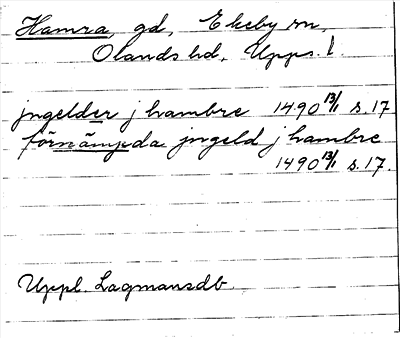 Hamra, gd, Ekeby sn,
Olands hd, Upps. l.
jngelder j hambre 1490 13/1 s. 17
förnämpda jngeld j hambre
1490 13/1 s. 17.
Uppl. Lagmansdb.